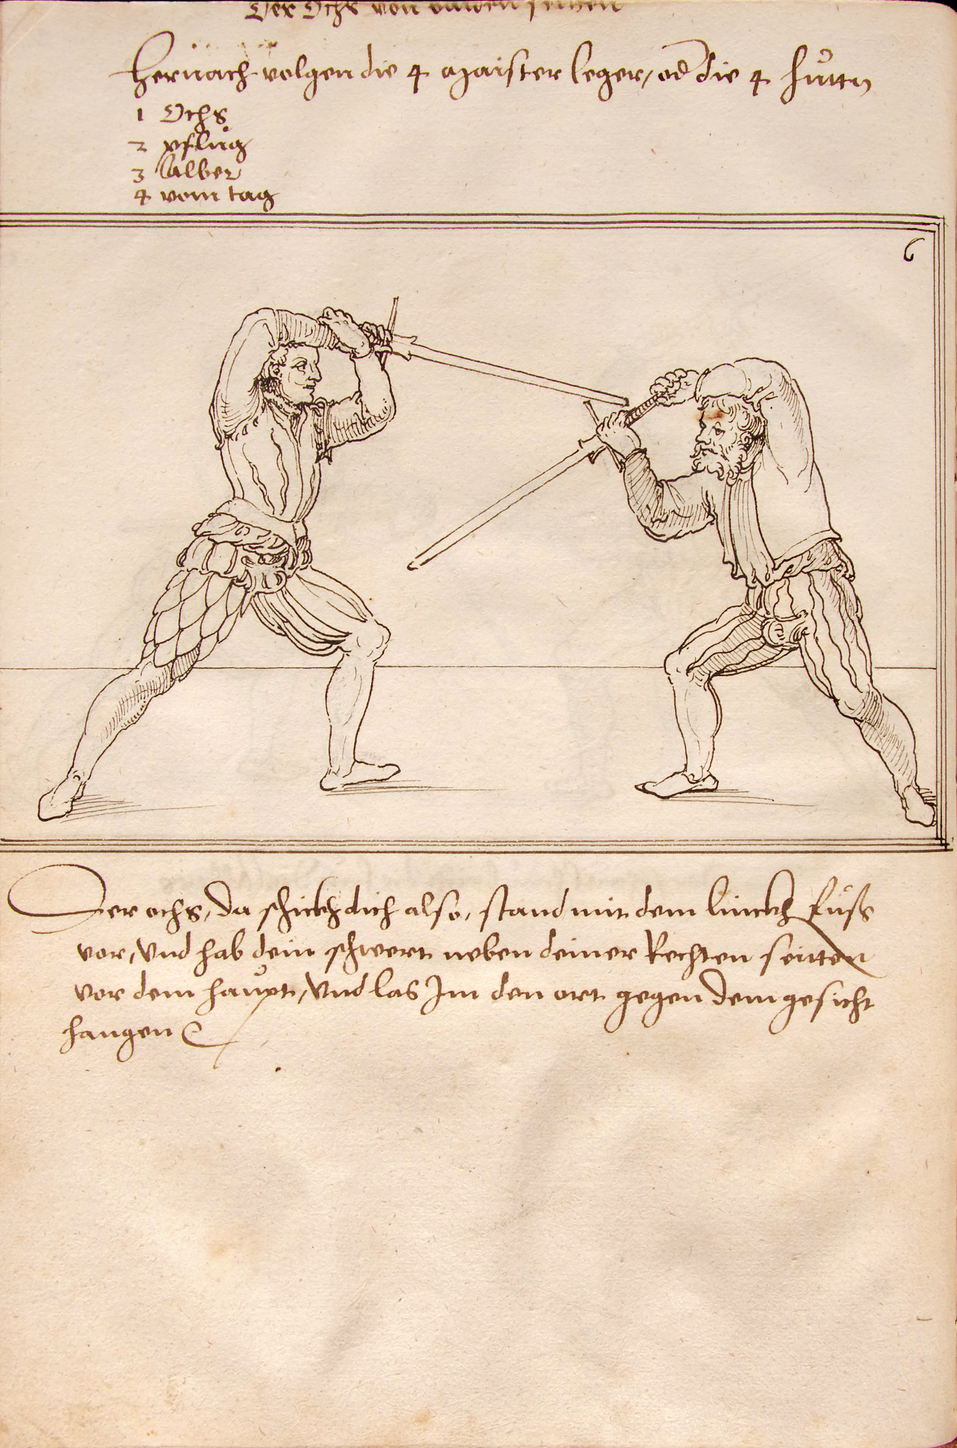 Der Ochs von baiden seitten
Hernach volgen die 4 maister leger, od die 4 hůttn
1 Ochs
2 pflůg
3 alber
4 vom tag
6
Der ochs, da schickh dich also, stand mit dem linckh fůss
vor, vnd hab dein schwert neben deiner Rechten seitten
vor dem haůpt, vnd las Im den ort gegen dem gesicht
hangen